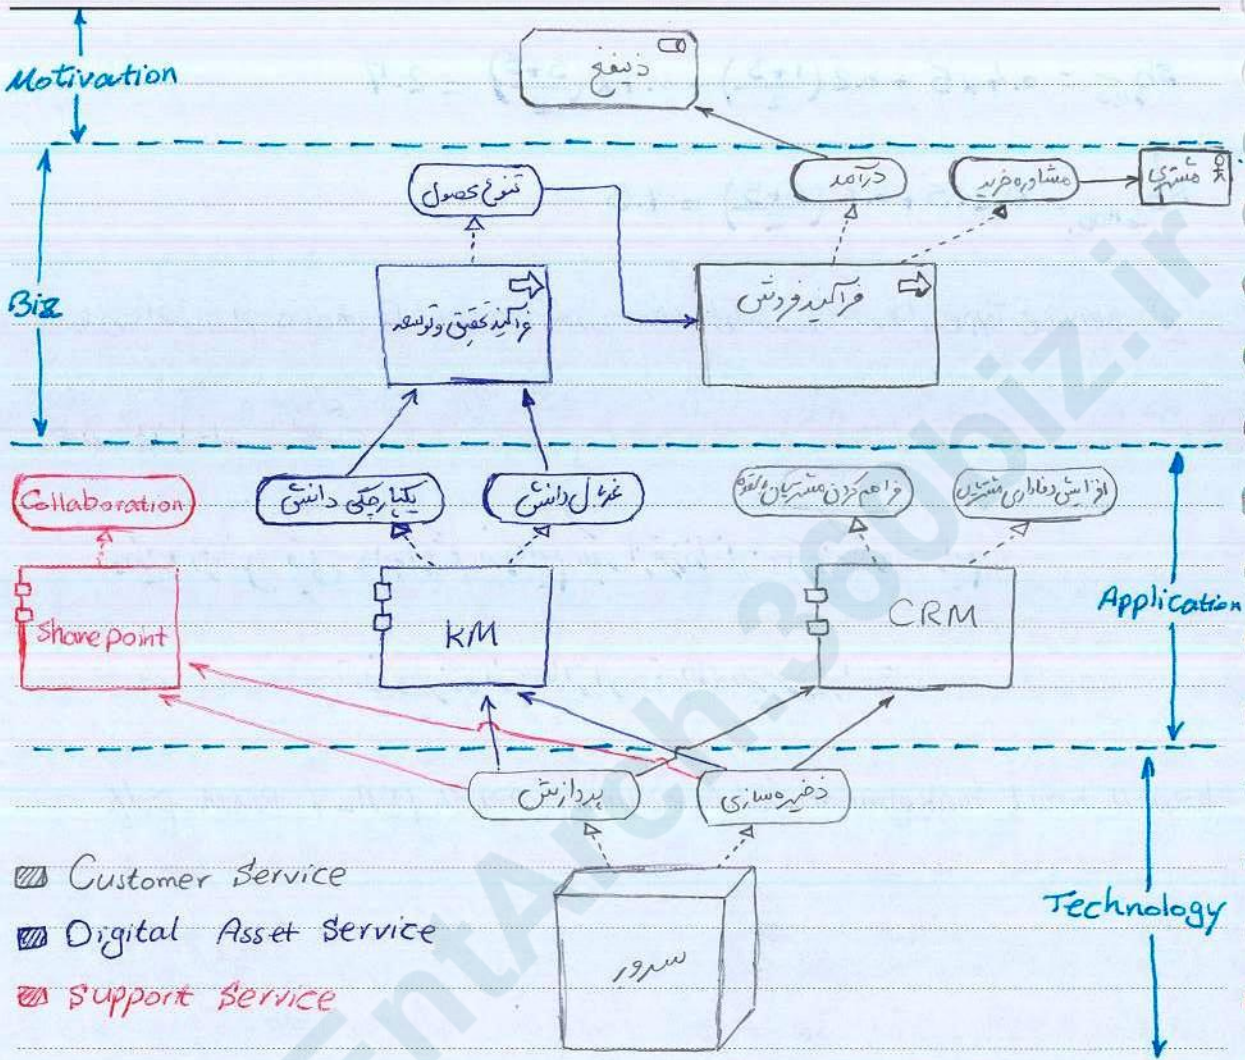 Motivation
ذینفع
Biz
تنوع محصول
درآمد
مشاوره خرید
مشتری
فرآیند تحقیق و توسعه
فرآیند فروش
Application
Collaboration
یکپارچگی دانش
غربال دانش
فراهم کردن مشتریان بالقوه
افزایش وفاداری مشتریان
Sharepoint
KM
CRM
Technology
پردازش
ذخیره سازی
سرور
Customer Service
Digital Asset Service
Support Service
EntArch.360biz.ir